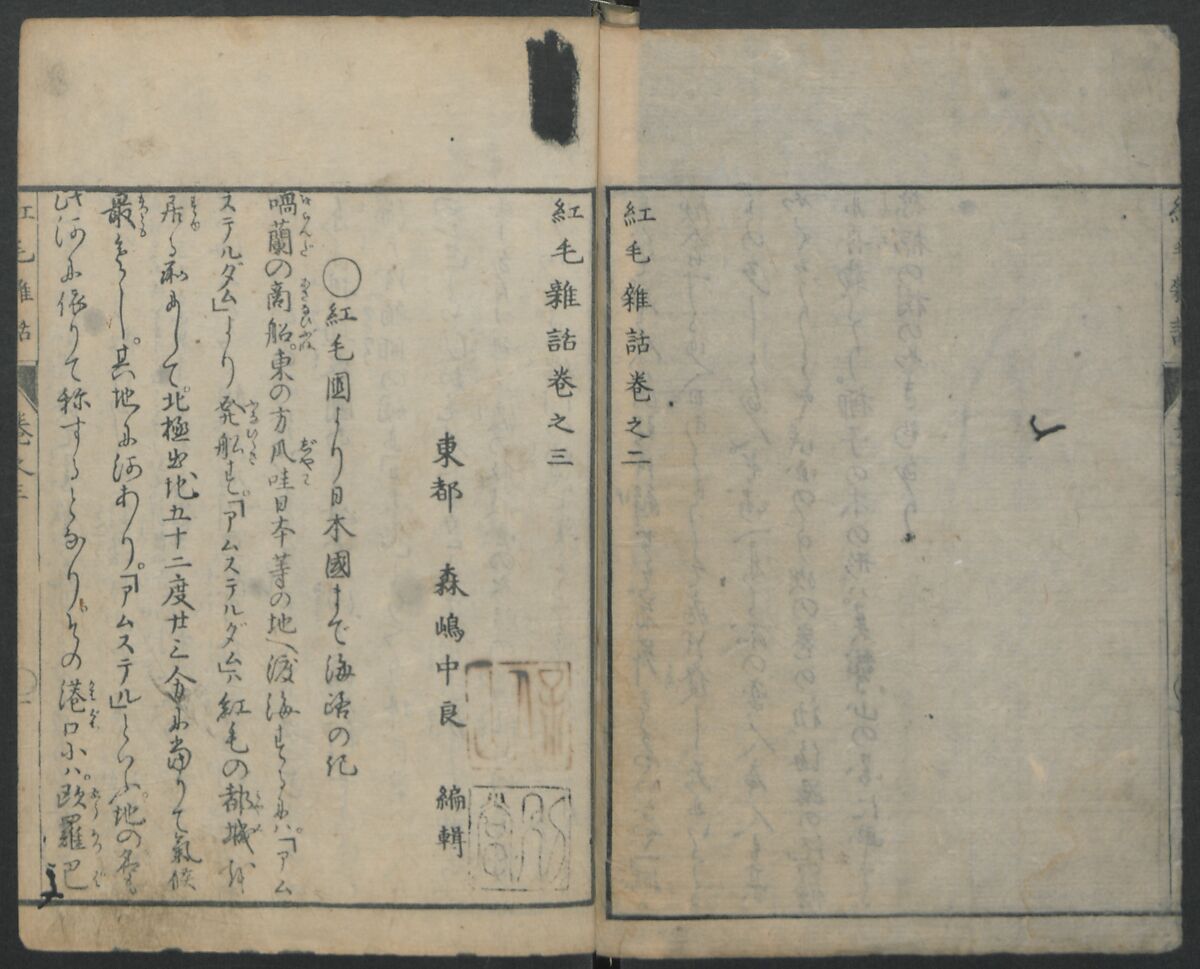 紅毛雜話卷之二
紅毛雜話卷之三
東都 森嶋中良 編輯
○紅毛國より日本國まで海路の紀
喎蘭の商船。東の方爪哇日本等の地へ渡海するには。「アム
ステルダム」より発船す。「アムステルダム」は紅毛の都城
居る所にして。北極出地五十二度廿三分に當りて氣候
最もよし。其地に河あり。「アムステル」といふ。地の名も
此河に依りて称するとなり。その港口には。歐羅巴
紅毛雜話 卷之三